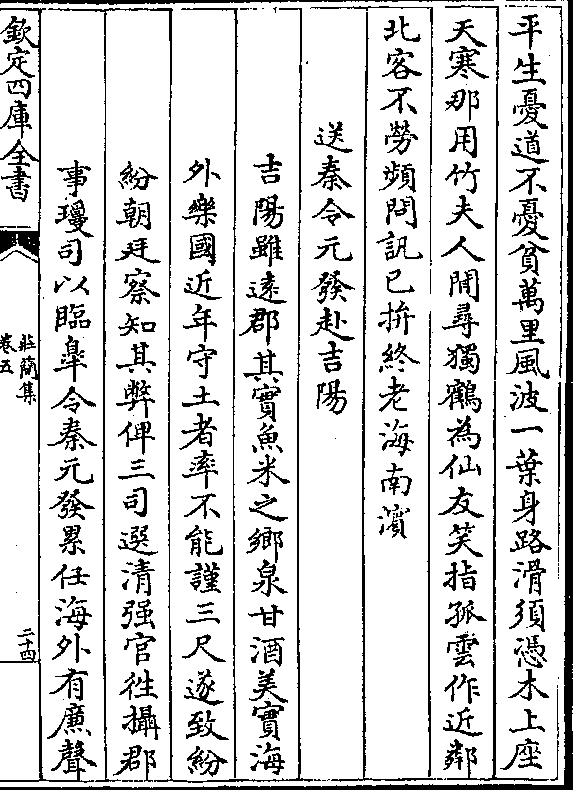 平生憂道不憂貧萬里風波一葉身路滑須憑木上座
天寒那用竹夫人閒尋獨鶴為仙友笑指孤雲作近鄰
北客不勞頻問訊已拚終老海南濱
送秦令元發赴吉陽
吉陽雖遠郡其實魚米之鄉泉甘酒美實海
外樂國近年守土者率不能謹三尺遂致紛
紛朝廷察知其弊俾三司選清强官徃攝郡
事瓊司以臨臯令秦元發累任海外有亷聲
欽定四庫全書
莊簡集
卷五
二十四